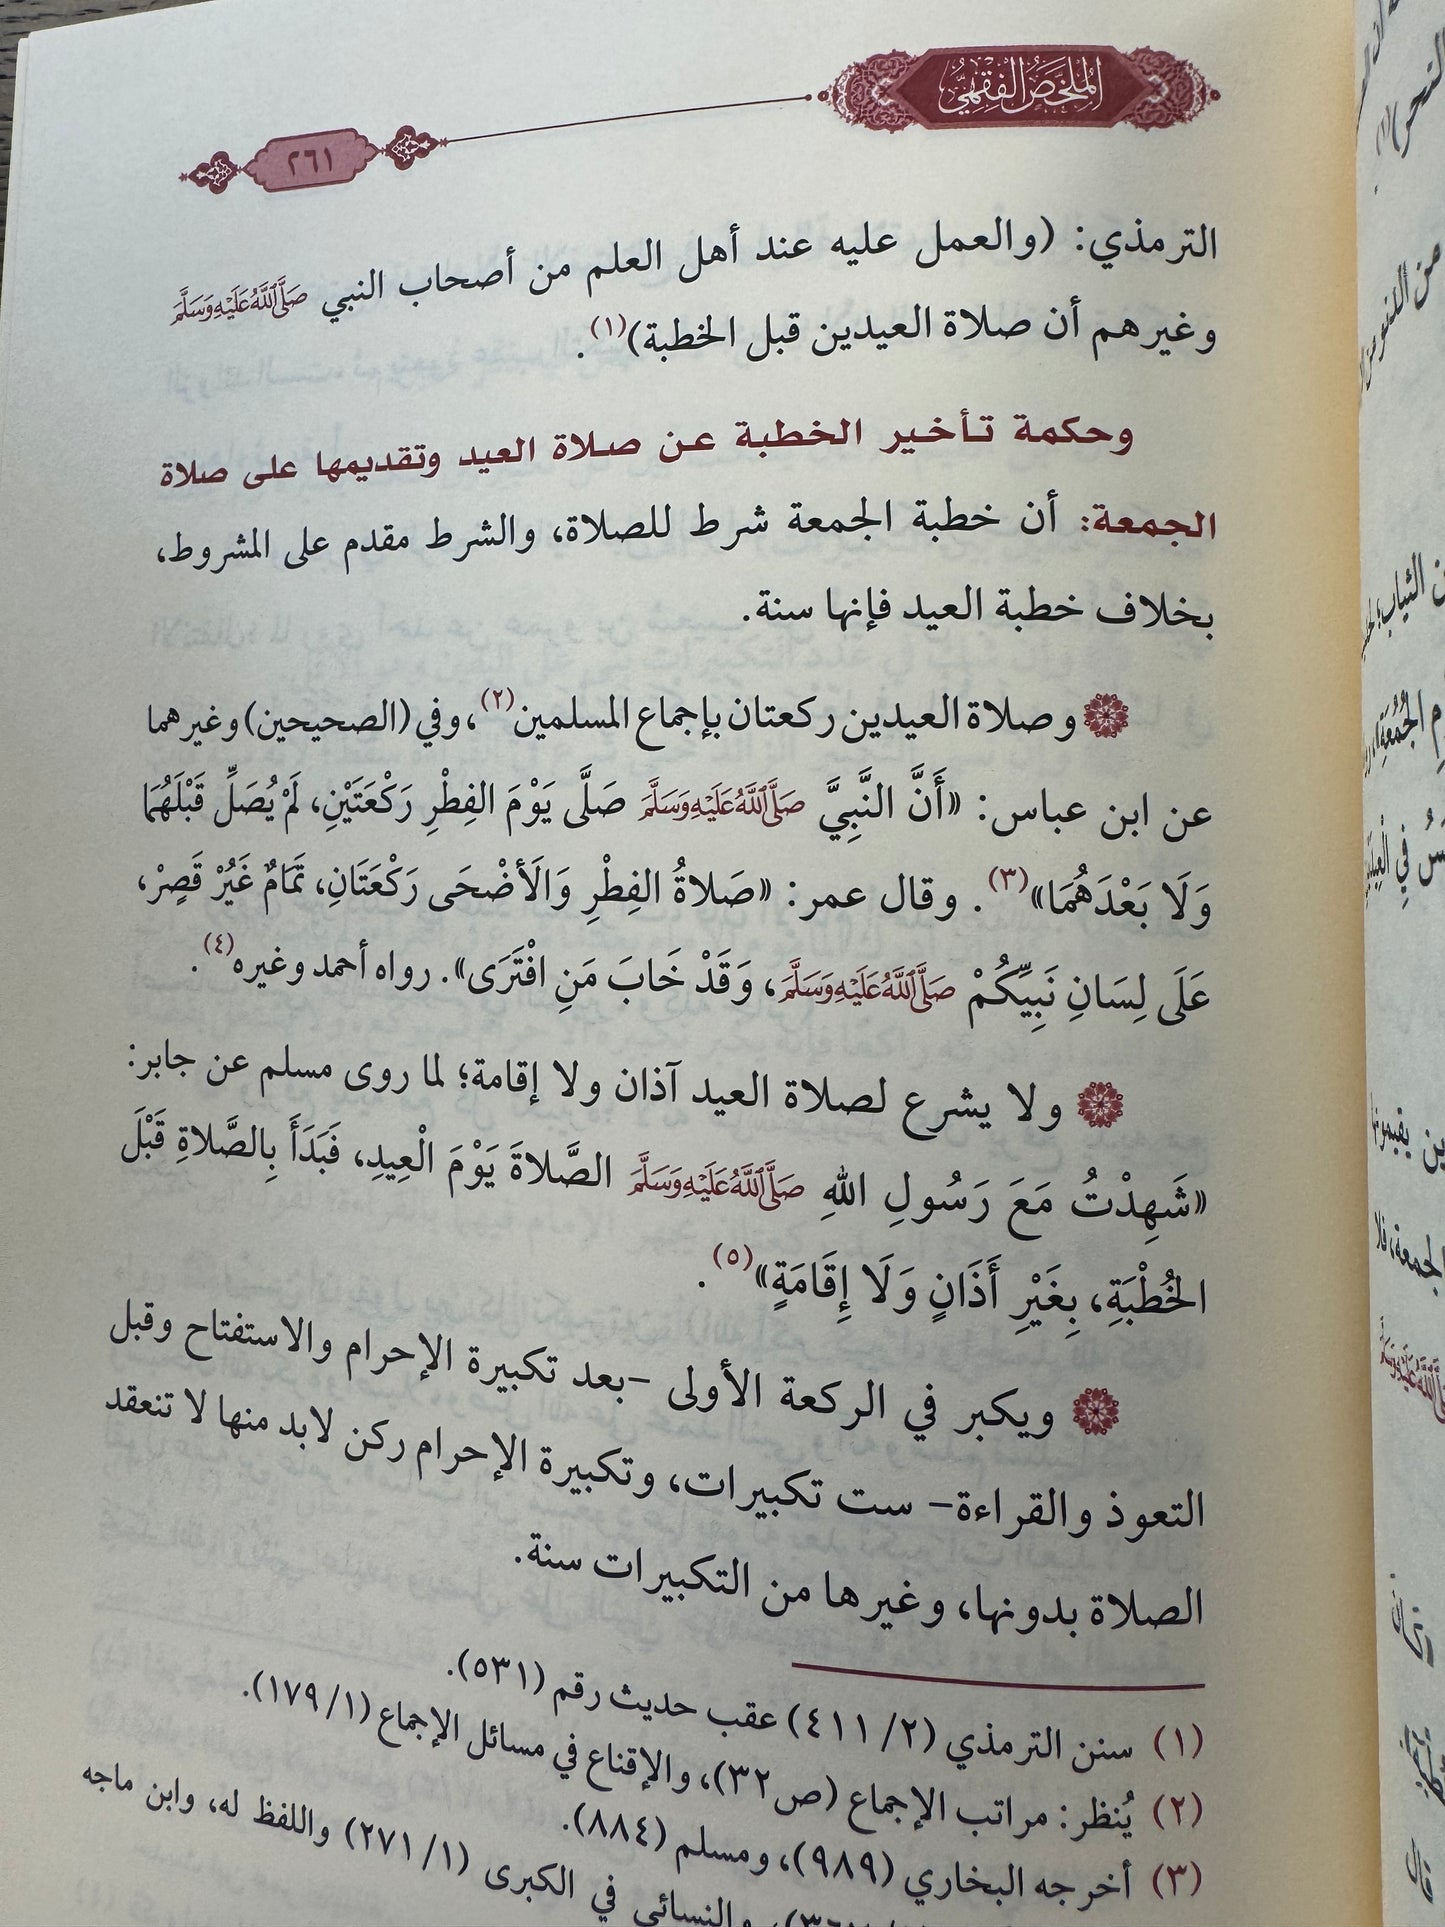 الملخص الفقهي
٢٦١
الترمذي: (والعمل عليه عند أهل العلم من أصحاب النبي صَلَّى اللَّهُ عَلَيْهِ وَسَلَّمَ
وغيرهم أن صلاة العيدين قبل الخطبة)(١).
وحكمة تأخير الخطبة عن صلاة العيد وتقديمها على صلاة
الجمعة: أن خطبة الجمعة شرط للصلاة، والشرط مقدم على المشروط،
بخلاف خطبة العيد فإنها سنة.
وصلاة العيدين ركعتان بإجماع المسلمين(٢)، وفي (الصحيحين) وغيرهما
عن ابن عباس: «أَنَّ النَّبِيَّ صَلَّى اللَّهُ عَلَيْهِ وَسَلَّمَ صَلَّى يَوْمَ الفِطْرِ رَكْعَتَيْنِ، لَمْ يُصَلِّ قَبْلَهُمَا
وَلَا بَعْدَهُمَا»(٣). وقال عمر: «صَلاةُ الفِطْرِ وَالأَضْحَى رَكْعَتَانِ، تَمَامٌ غَيُرْ قَصٍرْ،
عَلَى لِسَانِ نَبِيِّكُمْ صَلَّى اللَّهُ عَلَيْهِ وَسَلَّمَ، وَقَدْ خَابَ مَنِ افْتَرَى». رواه أحمد وغيره(٤).
ولا يشرع لصلاة العيد آذان ولا إقامة؛ لما روى مسلم عن جابر:
«شَهِدْتُ مَعَ رَسُولِ اللهِ صَلَّى اللَّهُ عَلَيْهِ وَسَلَّمَ الصَّلاةَ يَوْمَ الْعِيدِ، فَبَدَأَ بِالصَّلاةِ قَبْلَ
الخُطْبَةِ، بِغَيْرِ أَذَانٍ وَلَا إِقَامَةٍ»(٥).
ويكبر في الركعة الأولى -بعد تكبيرة الإحرام والاستفتاح وقبل
التعوذ والقراءة- ست تكبيرات، وتكبيرة الإحرام ركن لابد منها لا تنعقد
الصلاة بدونها، وغيرها من التكبيرات سنة.
(١) سنن الترمذي (٢/ ٤١١) عقب حديث رقم (٥٣١).
(٢) يُنظر: مراتب الإجماع (ص٣٢)، والإقناع في مسائل الإجماع (١/ ١٧٩).
(٣) أخرجه البخاري (٩٨٩)، ومسلم (٨٨٤).
والنسائي في الكبرى (١/ ٢٧١) واللفظ له، وابن ماجه